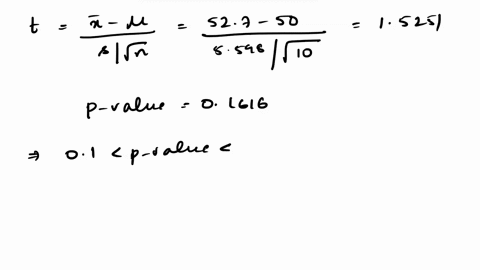 t = x̄ - μ / s/√n = 52.7 - 50 / 5.598/√10 = 1.5251
p-value = 0.1616
⇒ 0.1 < p-value <